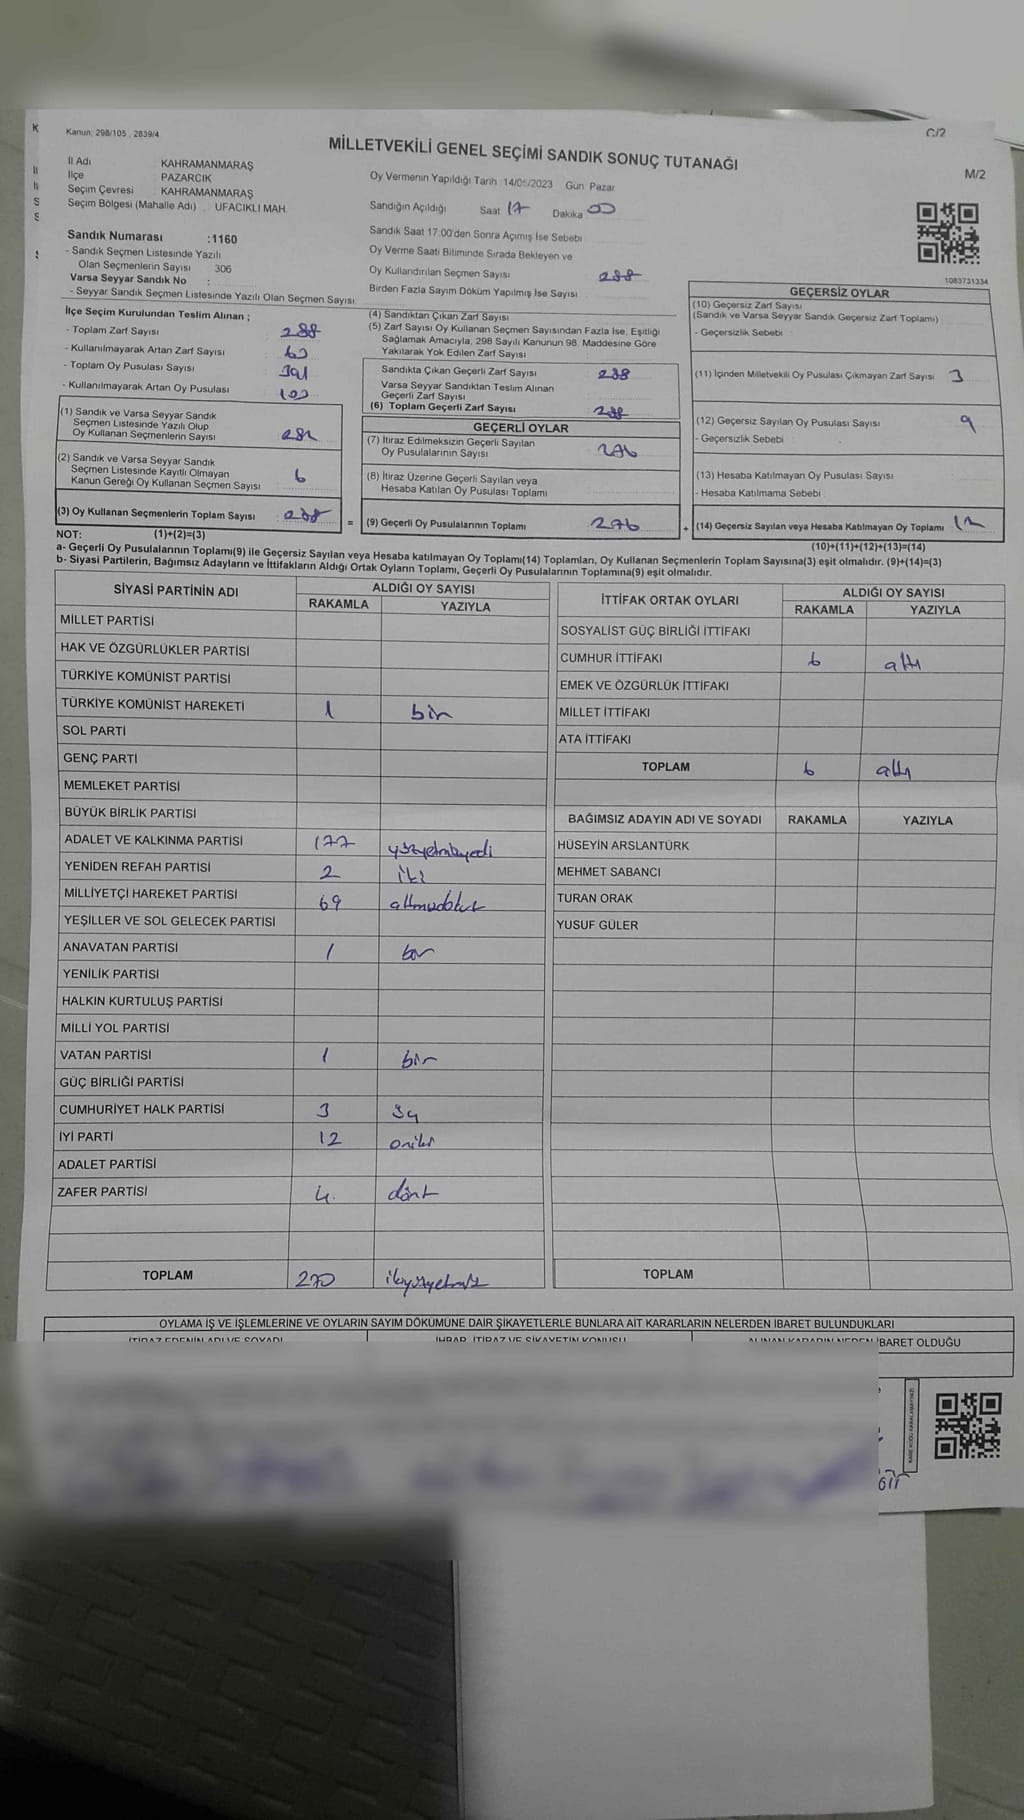 Kanun; 298/105 , 2839/4
C/2
MİLLETVEKİLİ GENEL SEÇİMİ SANDIK SONUÇ TUTANAĞI
M/2
İl Adı KAHRAMANMARAŞ
İlçe PAZARCIK
Seçim Çevresi KAHRAMANMARAŞ
Seçim Bölgesi (Mahalle Adı) UFACIKLI MAH.
Sandık Numarası :1160
- Sandık Seçmen Listesinde Yazılı
Olan Seçmenlerin Sayısı 306
Varsa Seyyar Sandık No :
- Seyyar Sandık Seçmen Listesinde Yazılı Olan Seçmen Sayısı:
Oy Vermenin Yapıldığı Tarih :14/05/2023 Gün: Pazar
Sandığın Açıldığı Saat 17 Dakika 00
Sandık Saat 17.00'den Sonra Açımış İse Sebebi
Oy Verme Saati Bitiminde Sırada Bekleyen ve
Oy Kullandırılan Seçmen Sayısı 288
Birden Fazla Sayım Döküm Yapılmış İse Sayısı
1083731334
İlçe Seçim Kurulundan Teslim Alınan ;
- Toplam Zarf Sayısı 288
- Kullanılmayarak Artan Zarf Sayısı
- Toplam Oy Pusulası Sayısı
- Kullanılmayarak Artan Oy Pusulası
(1) Sandık ve Varsa Seyyar Sandık
Seçmen Listesinde Yazılı Olup
Oy Kullanan Seçmenlerin Sayısı 282
(2) Sandık ve Varsa Seyyar Sandık
Seçmen Listesinde Kayıtlı Olmayan
Kanun Gereği Oy Kullanan Seçmen Sayısı 6
(3) Oy Kullanan Seçmenlerin Toplam Sayısı 288
(4) Sandıktan Çıkan Zarf Sayısı
(5) Zarf Sayısı Oy Kullanan Seçmen Sayısından Fazla İse, Eşitliği
Sağlamak Amacıyla, 298 Sayılı Kanunun 98. Maddesine Göre
Yakılarak Yok Edilen Zarf Sayısı
Sandıkta Çıkan Geçerli Zarf Sayısı 288
Varsa Seyyar Sandıktan Teslim Alınan
Geçerli Zarf Sayısı
(6) Toplam Geçerli Zarf Sayısı 288
GEÇERLİ OYLAR
(7) İtiraz Edilmeksizin Geçerli Sayılan
Oy Pusulalarının Sayısı 276
(8) İtiraz Üzerine Geçerli Sayılan veya
Hesaba Katılan Oy Pusulası Toplamı
= (9) Geçerli Oy Pusulalarının Toplamı 276
GEÇERSİZ OYLAR
(10) Geçersiz Zarf Sayısı
(Sandık ve Varsa Seyyar Sandık Geçersiz Zarf Toplamı)
- Geçersizlik Sebebi
(11) İçinden Milletvekili Oy Pusulası Çıkmayan Zarf Sayısı 3
(12) Geçersiz Sayılan Oy Pusulası Sayısı 9
- Geçersizlik Sebebi
(13) Hesaba Katılmayan Oy Pusulası Sayısı
- Hesaba Katılmama Sebebi
+ (14) Geçersiz Sayılan veya Hesaba Katılmayan Oy Toplamı 12
NOT: (1)+(2)=(3)
(10)+(11)+(12)+(13)=(14)
a- Geçerli Oy Pusulalarının Toplamı(9) ile Geçersiz Sayılan veya Hesaba katılmayan Oy Toplamı(14) Toplamları, Oy Kullanan Seçmenlerin Toplam Sayısına(3) eşit olmalıdır. (9)+(14)=(3)
b- Siyasi Partilerin, Bağımsız Adayların ve İttifakların Aldığı Oyların Toplamı, Geçerli Oy Pusulalarının Toplamına(9) eşit olmalıdır.
SİYASİ PARTİNİN ADI ALDIĞI OY SAYISI
RAKAMLA YAZIYLA
MİLLET PARTİSİ
HAK VE ÖZGÜRLÜKLER PARTİSİ
TÜRKİYE KOMÜNİST PARTİSİ
TÜRKİYE KOMÜNİST HAREKETİ 1 bir
SOL PARTİ
GENÇ PARTİ
MEMLEKET PARTİSİ
BÜYÜK BİRLİK PARTİSİ
ADALET VE KALKINMA PARTİSİ 177 yüzyetmişyedi
YENİDEN REFAH PARTİSİ 2 iki
MİLLİYETÇİ HAREKET PARTİSİ 69 altmışdokuz
YEŞİLLER VE SOL GELECEK PARTİSİ
ANAVATAN PARTİSİ 1 bir
YENİLİK PARTİSİ
HALKIN KURTULUŞ PARTİSİ
MİLLİ YOL PARTİSİ
VATAN PARTİSİ 1 bir
GÜÇ BİRLİĞİ PARTİSİ
CUMHURİYET HALK PARTİSİ 3 üç
İYİ PARTİ 12 oniki
ADALET PARTİSİ
ZAFER PARTİSİ 4 dört
TOPLAM 270 ikiyüzyetmiş
İTTİFAK ORTAK OYLARI ALDIĞI OY SAYISI
RAKAMLA YAZIYLA
SOSYALİST GÜÇ BİRLİĞİ İTTİFAKI
CUMHUR İTTİFAKI 6 altı
EMEK VE ÖZGÜRLÜK İTTİFAKI
MİLLET İTTİFAKI
ATA İTTİFAKI
TOPLAM 6 altı
BAĞIMSIZ ADAYIN ADI VE SOYADI RAKAMLA YAZIYLA
HÜSEYİN ARSLANTÜRK
MEHMET SABANCI
TURAN ORAK
YUSUF GÜLER
TOPLAM
OYLAMA İŞ VE İŞLEMLERİNE VE OYLARIN SAYIM DÖKÜMÜNE DAİR ŞİKAYETLERLE BUNLARA AİT KARARLARIN NELERDEN İBARET BULUNDUKLARI
İTİRAZ EDENİN ADI VE SOYADI İHBAR, İTİRAZ VE ŞİKAYETİN KONUSU ALINAN KARARIN NEDEN İBARET OLDUĞU